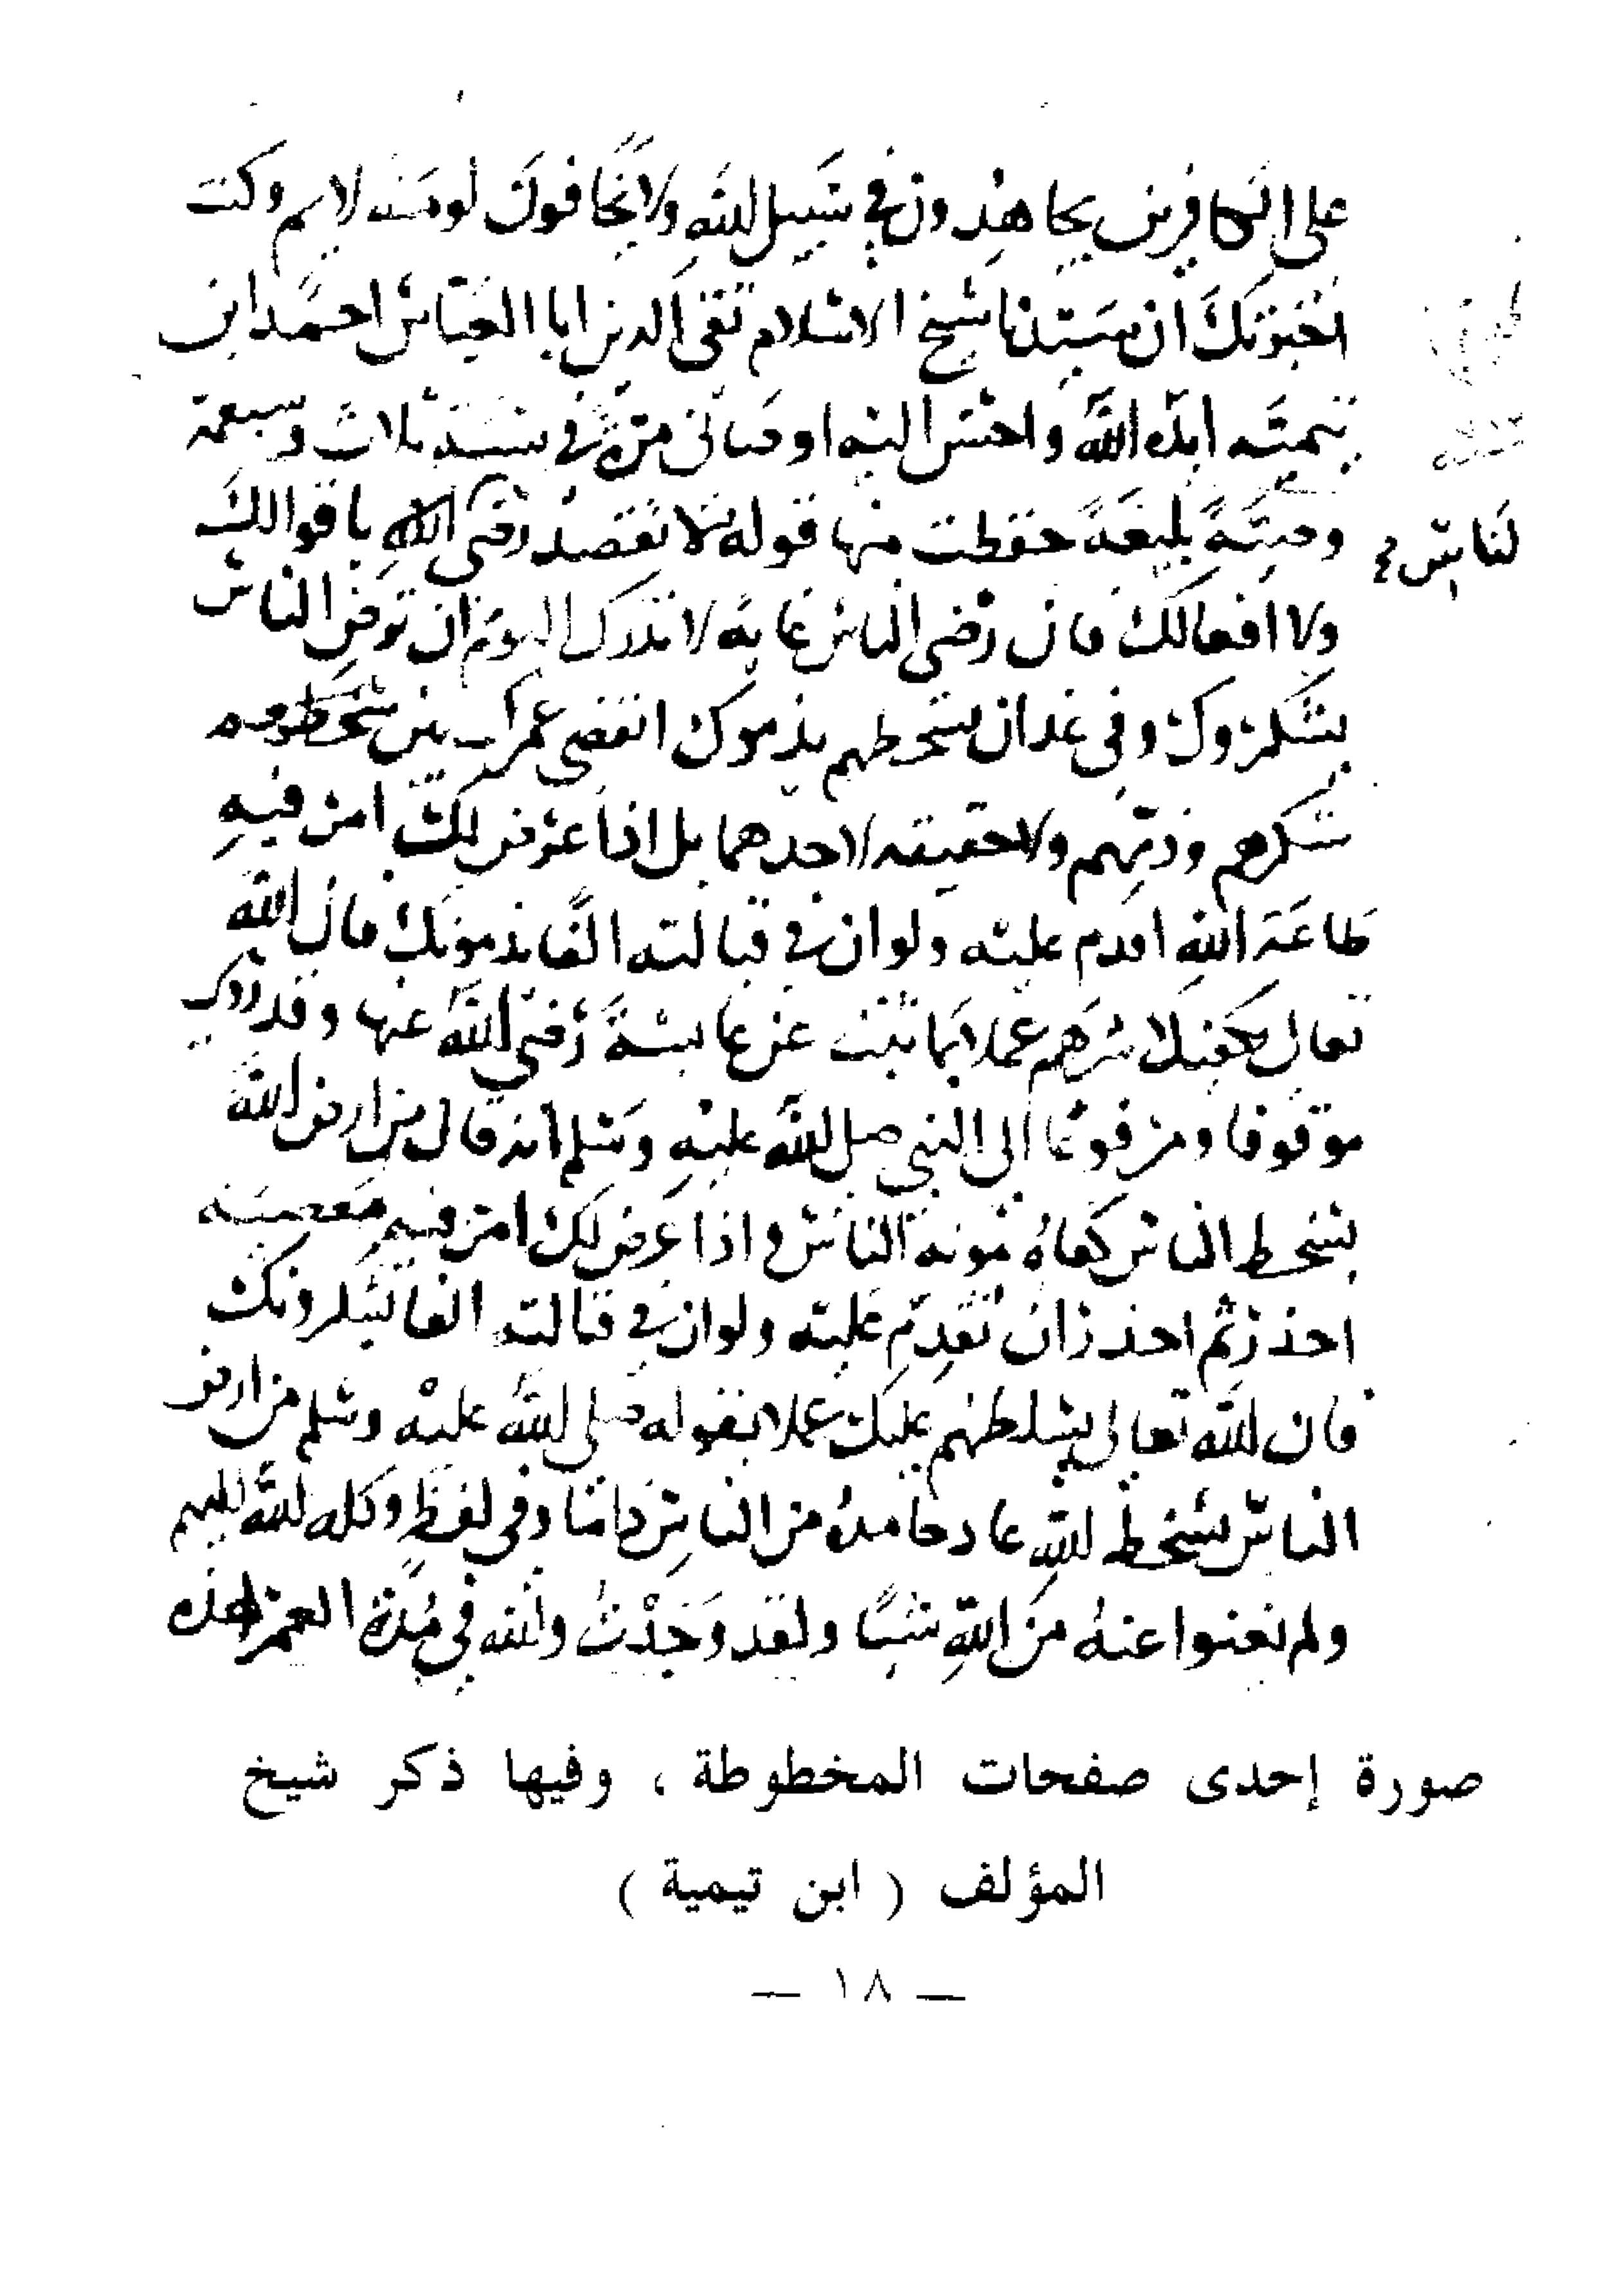 على الكافرين يجاهدون في سبيل الله ولا يخافون لومة لايم وكنت
اخبرتك ان سيدنا شيخ الاسلام تقي الدين ابا العباس احمد ابن
تيميه ايده الله واحسن اليه اوصاني مرة في سنة ثلاث وسبعمة
وصية بليغة حفظت منها قوله لا تقصد رضى الله باقوالك
لناس
ولا افعالك فان رضى الناس غاية لا تدرك اليوم ان ترض الناس
يشكروك وفي غد ان تسخطهم يذموك انقضى عمرك بين
شكرهم وذمهم ولا حقيقه لاحدهما بل اذا عرض لك امر فيه
طاعة الله اقدم عليه ولو ان في قبالته الفا يذمونك فان الله
تعالى يكفيك شرهم عملا بما ثبت عن عايشة رضي الله عنها وقد روي
موقوفا ومرفوعا الى النبي صلى الله عليه وسلم انه قال من ارض الله
بسخط الناس كفاه مونة الناس واذا عرض لك امر فيه معصيه
احذر ثم احذر ان تقدم عليه ولو ان في قبالته الفا يشكرونك
فان الله تعالى يسلطهم عليك عملا بقوله صلى الله عليه وسلم من ارض
الناس بسخط الله عاد حامده من الناس ذاما وفي لفظ وكله الله اليهم
ولم يغنوا عنه من الله شيا ولقد وجدت والله في مدة العمر هذه
صورة إحدى صفحات المخطوطة ، وفيها ذكر شيخ
المؤلف ( ابن تيمية )
— ١٨ —